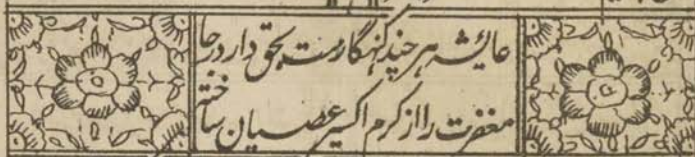 عایشه هر چند گنهگارست بحق دارد رجا
مغفرت را از کرم اکسیر عصیان ساختی